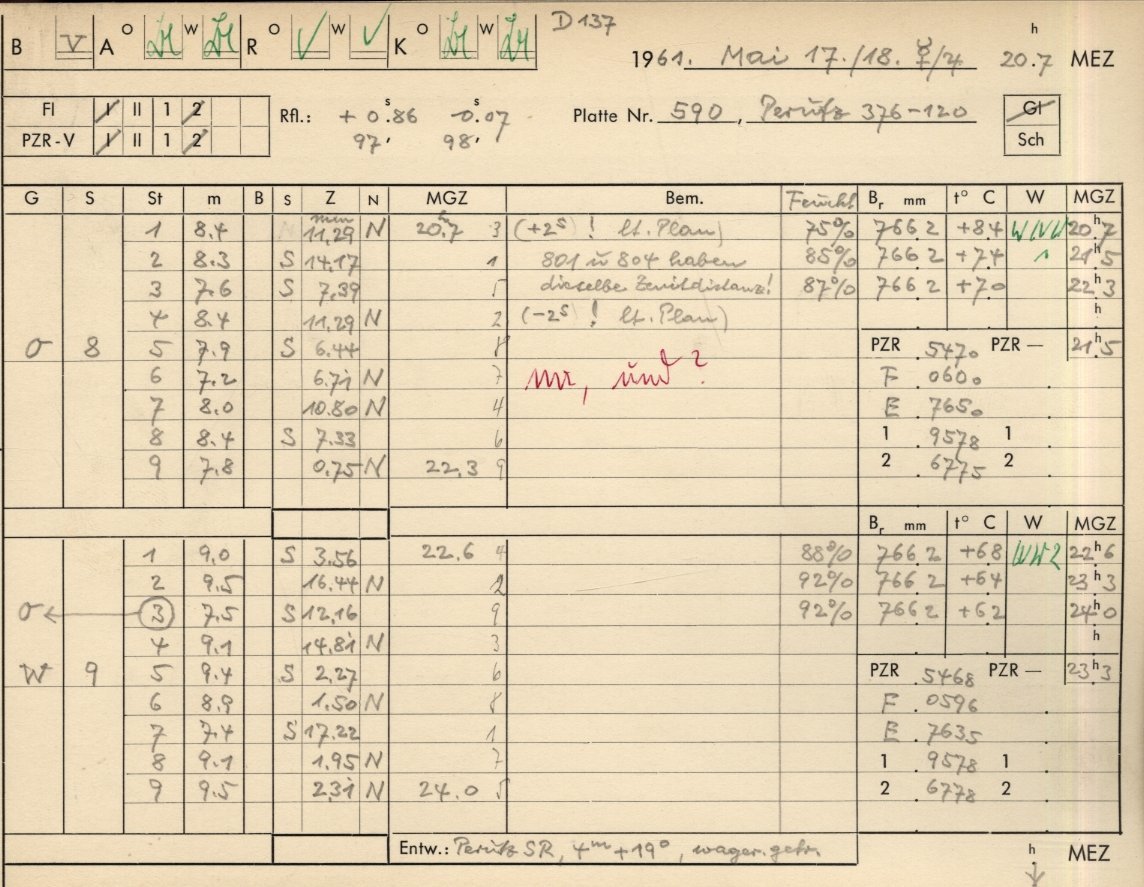 D 137
B V A O W R O √ W √ K O W
1961. Mai 17./18. ☿/♃ 20.7 h MEZ
Fl I II 1 2
PZR-V I II 1 2
Rfl.: + 0.86 s -0.07 s
97. 98.
Platte Nr. 590, Perutz 376-120
Gl
Sch
G S St m B S Z N MGZ Bem. Feucht. Br mm t° C W MGZ
1 8.4 min 11.29 N 20.7 h 3 (+2s) ! lt. Plan) 75% 766 2 +8.4 20 h 7
2 8.3 S 14.17 1 801 u 804 haben 85% 766 2 +7.4 21 h 5
3 7.6 S 7.39 5 dieselbe Zenitdistanz! 87% 766 2 +7.0 22 h 3
4 8.4 11.29 N 2 (-2s) ! lt. Plan) h
O 8 5 7.9 S 6.44 8 PZR .5470 PZR — 21 h 5
6 7.2 6.71 N 7 und? F .0600
7 8.0 10.80 N 4 E .7650
8 8.4 S 7.33 6 1 .9578 1 .
9 7.8 0.75 N 22.3 9 2 .6775 2 .
Br mm t° C W MGZ
1 9.0 S 3.56 22.6 4 88% 766 2 +6.8 22 h 6
2 9.5 16.44 N 2 92% 766 2 +6.4 23 h 3
O ← 3 7.5 S 12.16 9 92% 766 2 +6.2 24 h 0
4 9.1 14.81 N 3 h
W 9 5 9.4 S 2.27 6 PZR .5468 PZR — 23 h 3
6 8.9 1.50 N 8 F .0596
7 7.4 S 17.22 1 E .7635
8 9.1 1.95 N 7 1 .9578 1 .
9 9.5 2.31 N 24.0 5 2 .6778 2 .
Entw.: Perutz SR, 4m +19°, wager. getr. h MEZ